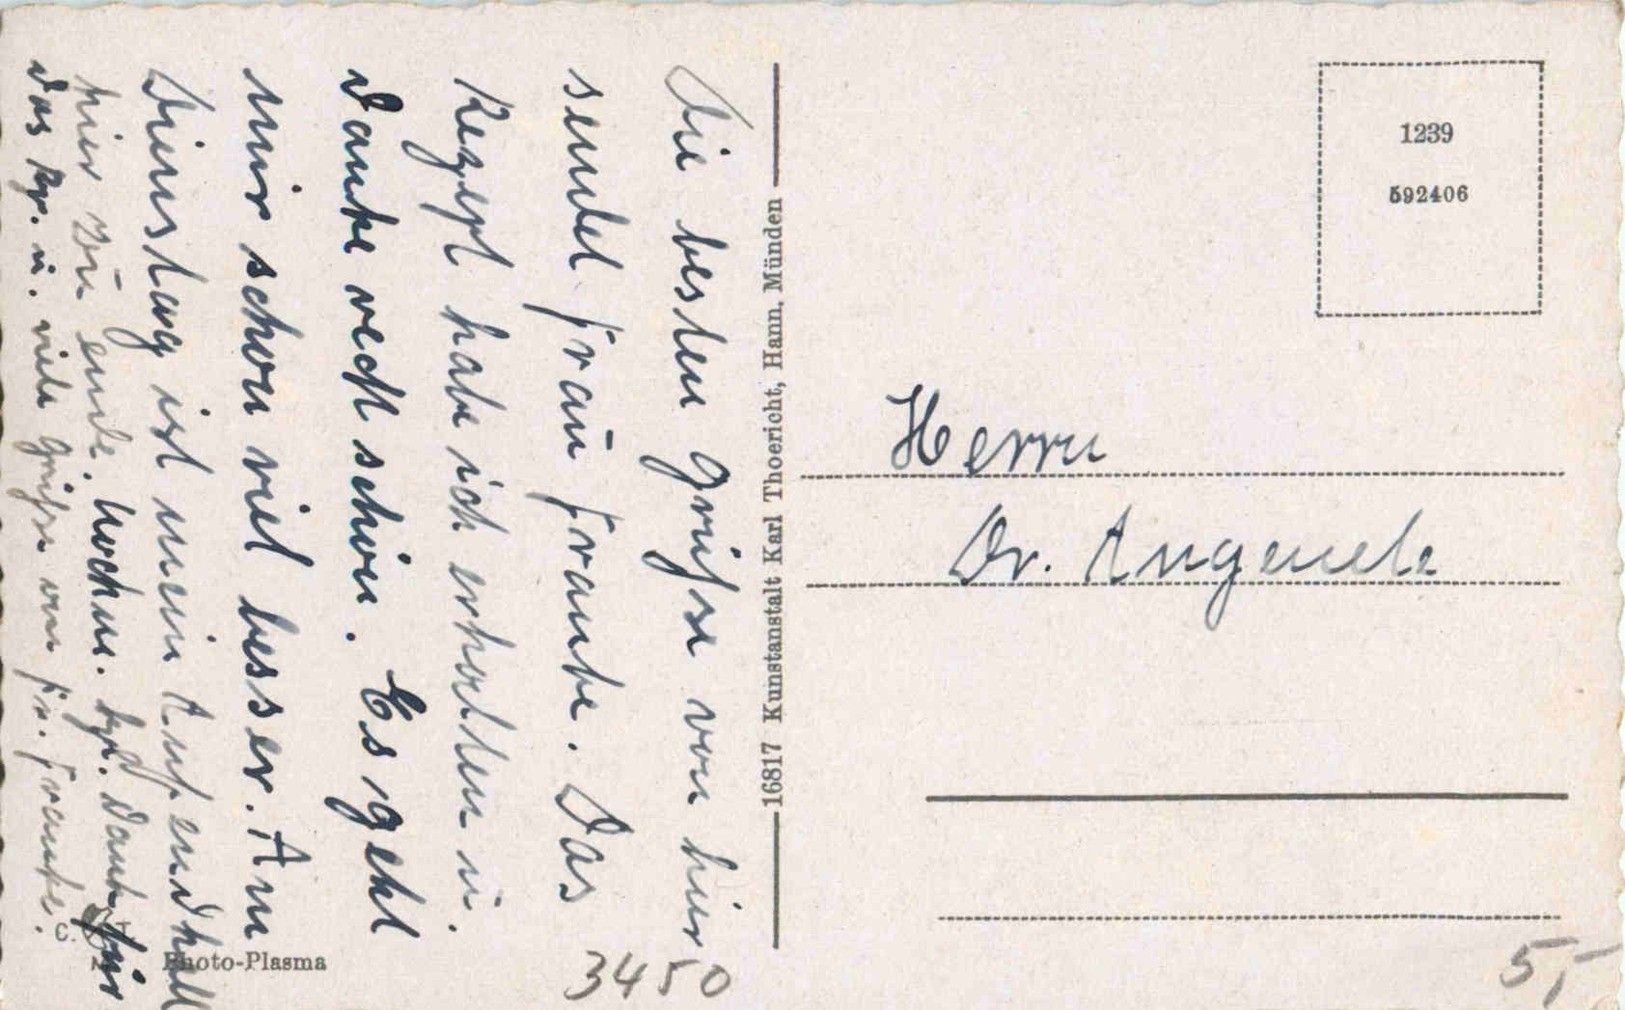 Die besten Grüße von hier
sendet Frau Franke. Das
Rezept habe ich erhalten u.
danke recht schön. Es geht
mir schon viel besser. Am
Dienstag ist mein Aufendhalt
hier zu ende. Nochm. hzl. Dank für
das Rp. u. viele Grüße von Fr. Franke.
C.
Photo-Plasma
3450
16817 Kunstanstalt Karl Thoericht, Hann. Münden
1239
592406
Herrn
Dr. Angenete
5,-